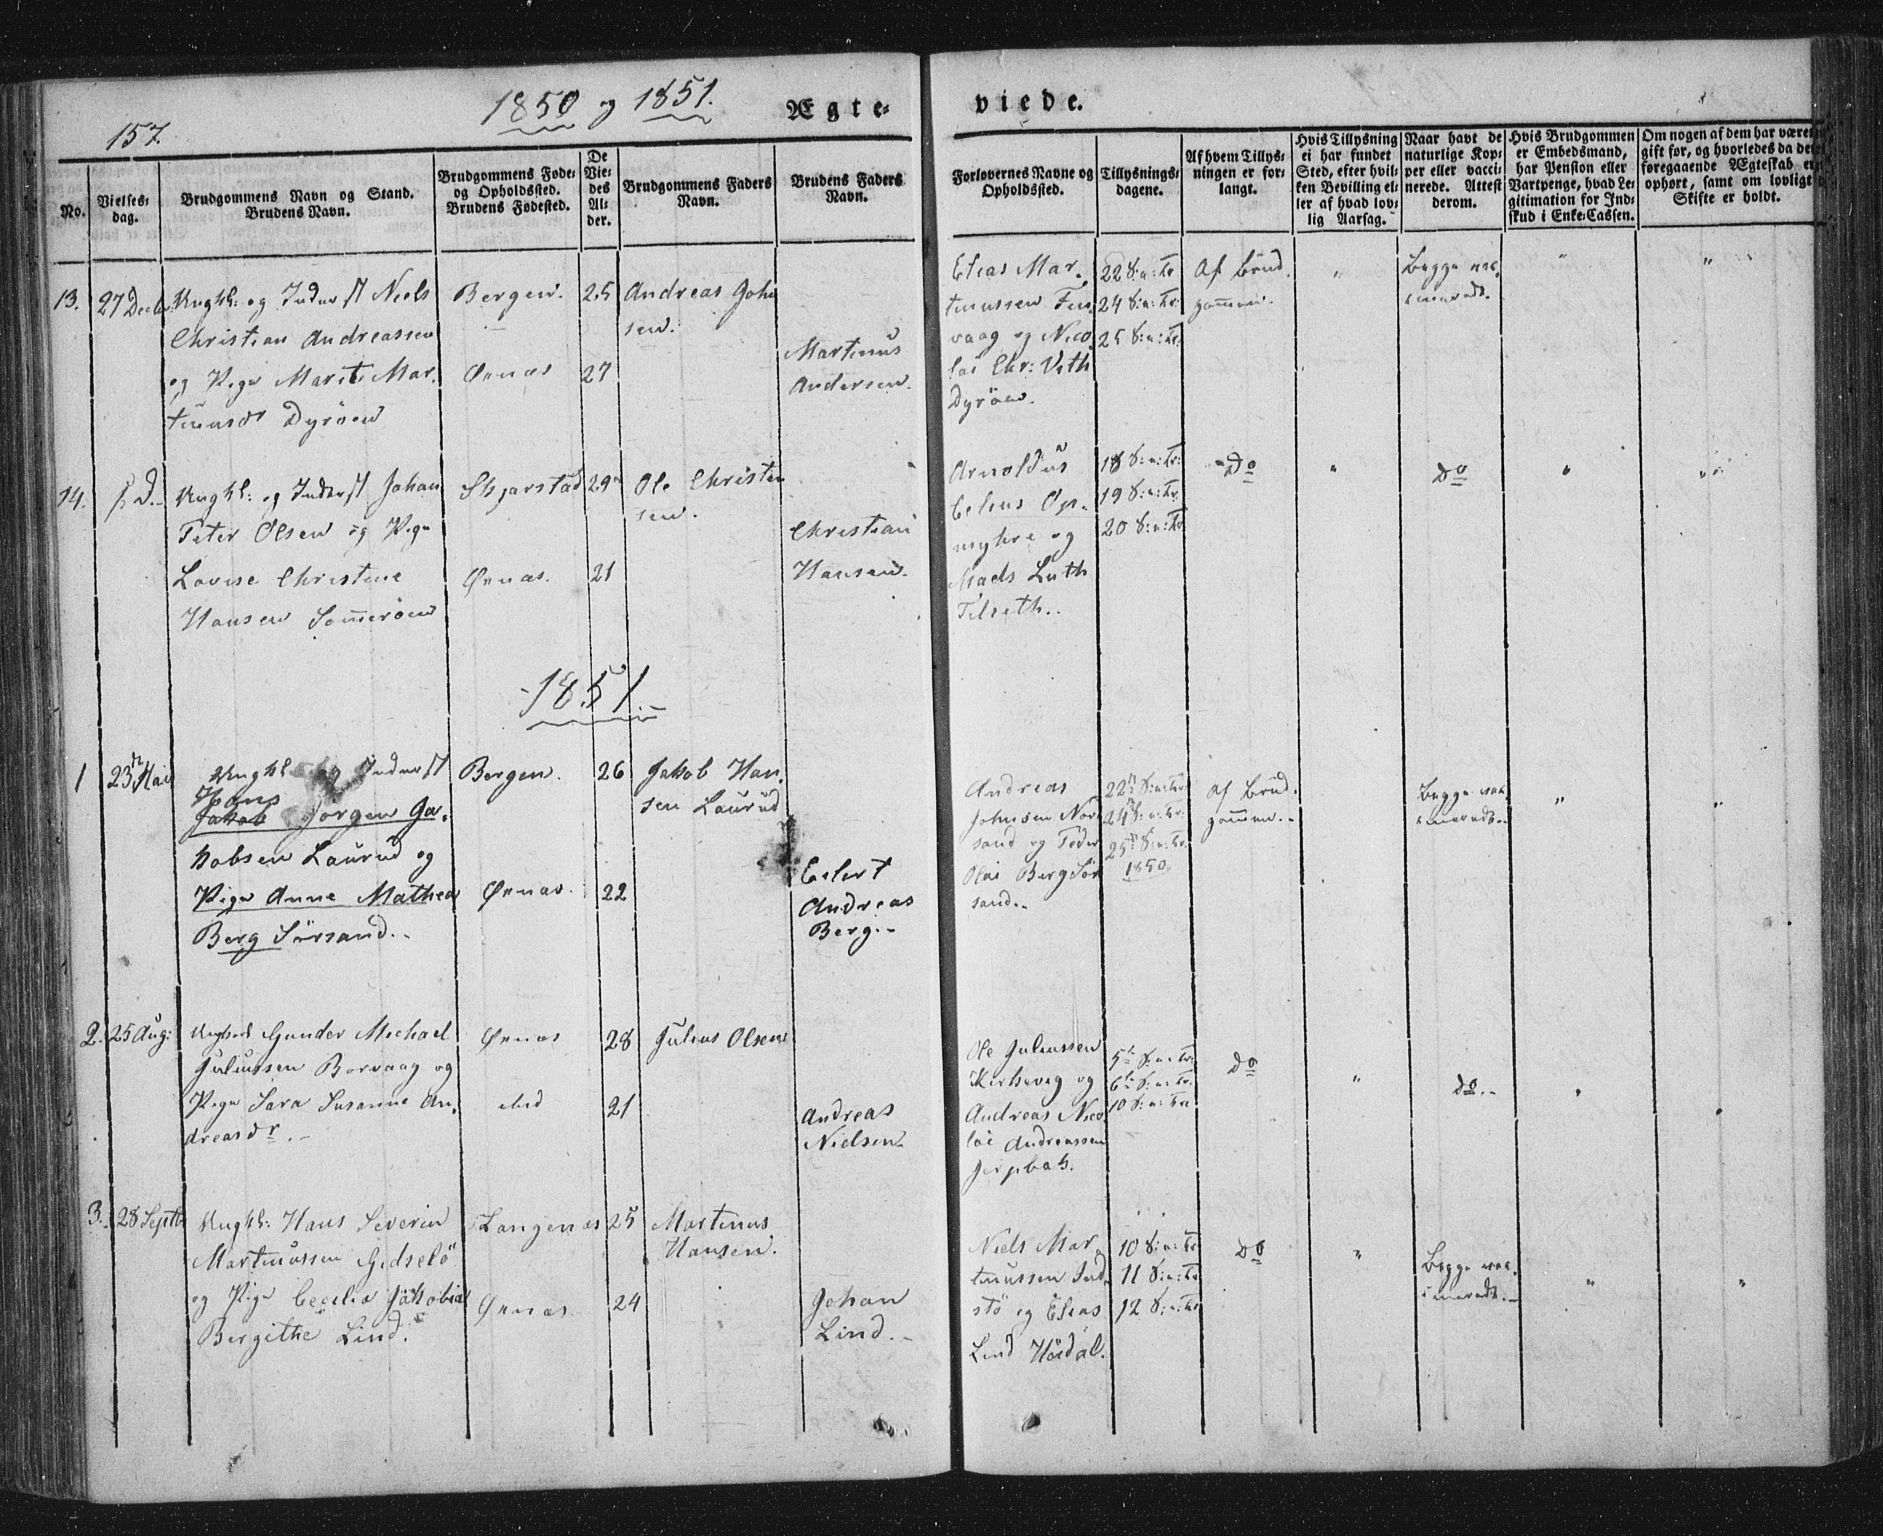 157.
1850 og 1851.
Ægte-
viede.
No.
Vielses-
dag.
Brudgommens Navn og Stand.
Brudens Navn.
Brudgommens Føde-
og Opholdssted.
Brudens Fødested.
De
Vie-
des
Al-
der.
Brudgommens Faders
Navn.
Brudens Faders
Navn.
Forlovernes Navne og
Opholdssted.
Tillysnings-
dagene.
Af hvem Tillys-
ningen er for-
langt.
Hvis Tillysning
ei har fundet
Sted, efter hvil-
ken Bevilling el-
ler af hvad lov-
lig Aarsag.
Naar havt de
naturlige Kop-
per eller vacci-
nerede. Attest
derom.
Hvis Brudgommen
er Embedsmand,
har Pension eller
Vartpenge, hvad Le-
gitimation for Ind-
skud i Enke-Cassen.
Om nogen af dem har været
gift før, og hvorledes da det
foregaaende Ægteskab er
ophørt, samt om lovligt
Skifte er holdt.
13.
27 Decbr:
Ungkl: og Inderst Niels
Christian Andreassen
og Pige Marit Mar-
tinusdr Dyröen
Bergen.
Øenas
25
27
Andreas Johan
sen.
Martinus
Andersen.
Elias Mar-
tinussen Fin-
vaag og Nico-
lai Chr: Veth
Dyröen.
22 S: e: Tr
24 S: e: Tr:
25 S: e: Tr:
Af Brud-
gommen.
"
Begge vac-
cinerede.
"
"
14.
s. D.
Ungkl: og Inderst Johan
Peter Olsen og Pige
Lovise Christine
Hansen Sommeröen
Skjerstad
Øenas.
29
21
Ole Christen
sen.
Christian
Hansen.
Arnoldus
og
Mads Luth
Tilseth.
18 S: e: Tr:
19 S: e: Tr.
20 S: e: Tr.
Do
"
Do
"
"
1851.
1
23de Mai
Ungkl og Inderst
Hans
Jakob Jorgen Ja-
kobsen Laurud og
Pige Anne Mathea
Berg Sörsand.
Bergen.
Øenas.
26
22
Jakob Han-
sen Laurud
Eilert
Andreas
Berg.
Andreas
Johnsen Nor-
sand og Peder
Olai Berg Sör
sand.
22de S: e: Tr:
24de S: e: Tr:
25de S: e: Tr.
1850.
Af Brud-
gommen.
Begge vac-
cinerede.
"
"
2.
25 Aug:
Ungkarl Gunder Michael
Juliussen Borvaag og
Pige Sara Susanne An-
dreasdr.
Øenas
ibid
28
21
Julius Olsen
Andreas
Nielsen.
Ole Juliussen
Kirkeveg og
Andreas Nico-
lai Andreassen
Jerpbak.
5te S: e: Tr:
6te S: e: Tr.
10 S: e: Tre
Do
"
do.
"
3.
28 Septbr
Ungkl: Hans Severin
Martinussen Gidselö
og Pige Cecilia Jakobia
Bergithe Lind.
Langenæs
Øenas.
25
24
Martinus
Hansen.
Johan
Lind.
Niels Mar-
tinussen Ind-
stö og Elias
Lind Hördal.
10 S: e: Tr
11 S: e: Tr
12 S: e: Tr
Do
"
Begge vac-
cinerede.
"
"